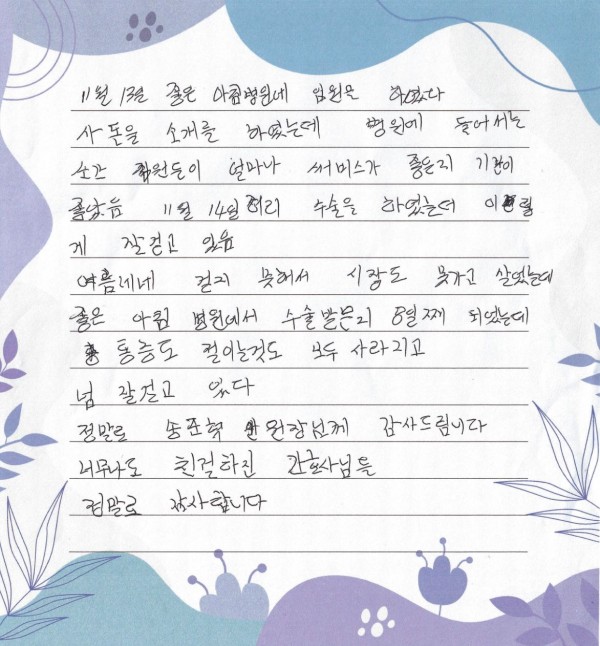 11월 13일 좋은 아침병원에 입원을 하였다
사돈을 소개를 하였는데 병원에 들어서는
순간 직원들이 얼마나 써비스가 좋은지 기분이
좋았음 11월 14일 허리 수술을 하였는데 이렇
게 잘걷고 있음
여름네네 걷지 못해서 시장도 못가고 살았는데
좋은 아침 병원에서 수술받은지 8일째 되었는데
통증도 절이는것도 모두 사라지고
넘 잘걷고 있다
정말로 송준혁 원장님께 감사드립니다
너무나도 친절하진 간호사님을
정말로 감사합니다